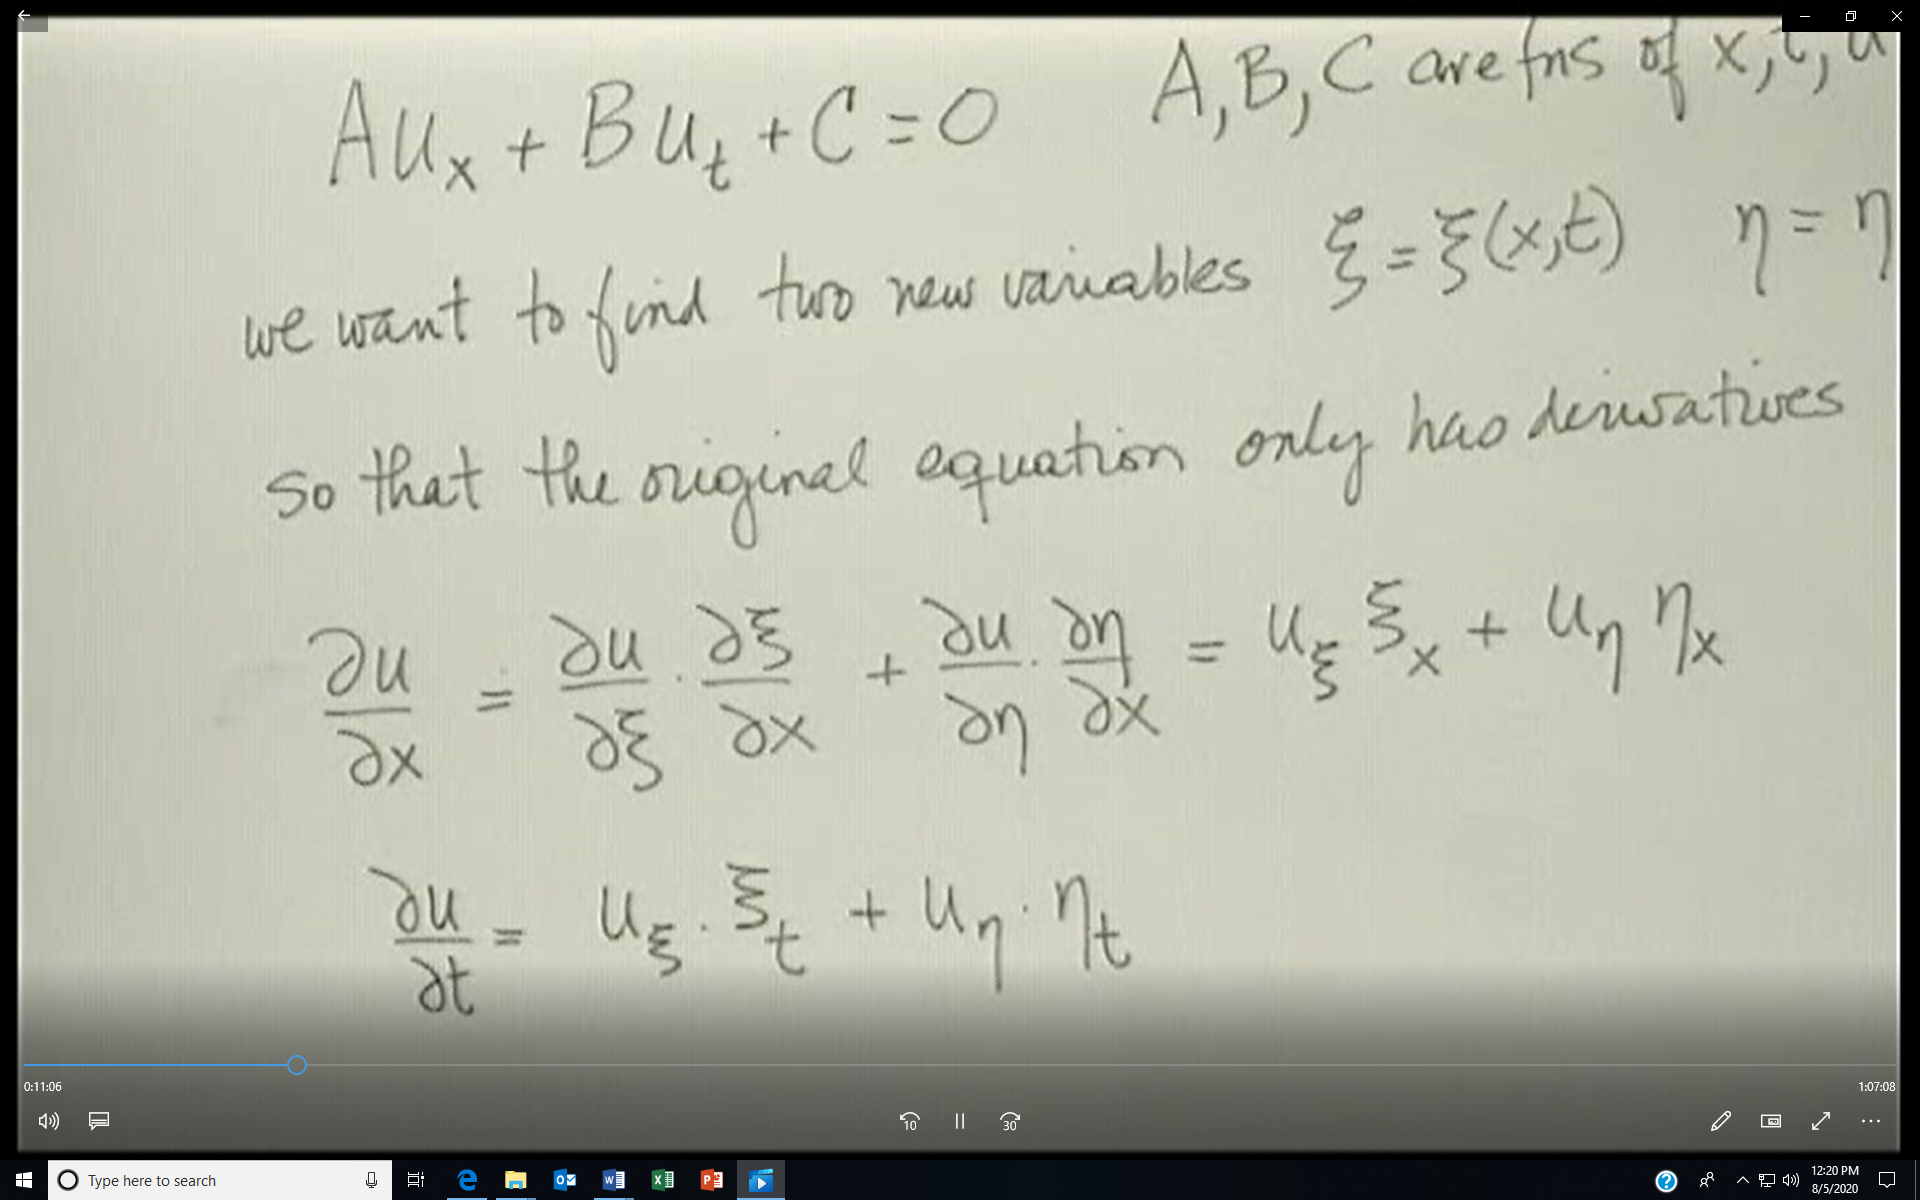 Au_x + Bu_t + C = 0 A, B, C are fns of x, t, u
we want to find two new variables ξ = ξ(x,t) η = η
so that the original equation only has derivatives
∂u/∂x = ∂u/∂ξ · ∂ξ/∂x + ∂u/∂η · ∂η/∂x = u_ξ ξ_x + u_η η_x
∂u/∂t = u_ξ · ξ_t + u_η · η_t
0:11:06 1:07:08
10 30
Type here to search
12:20 PM
8/5/2020